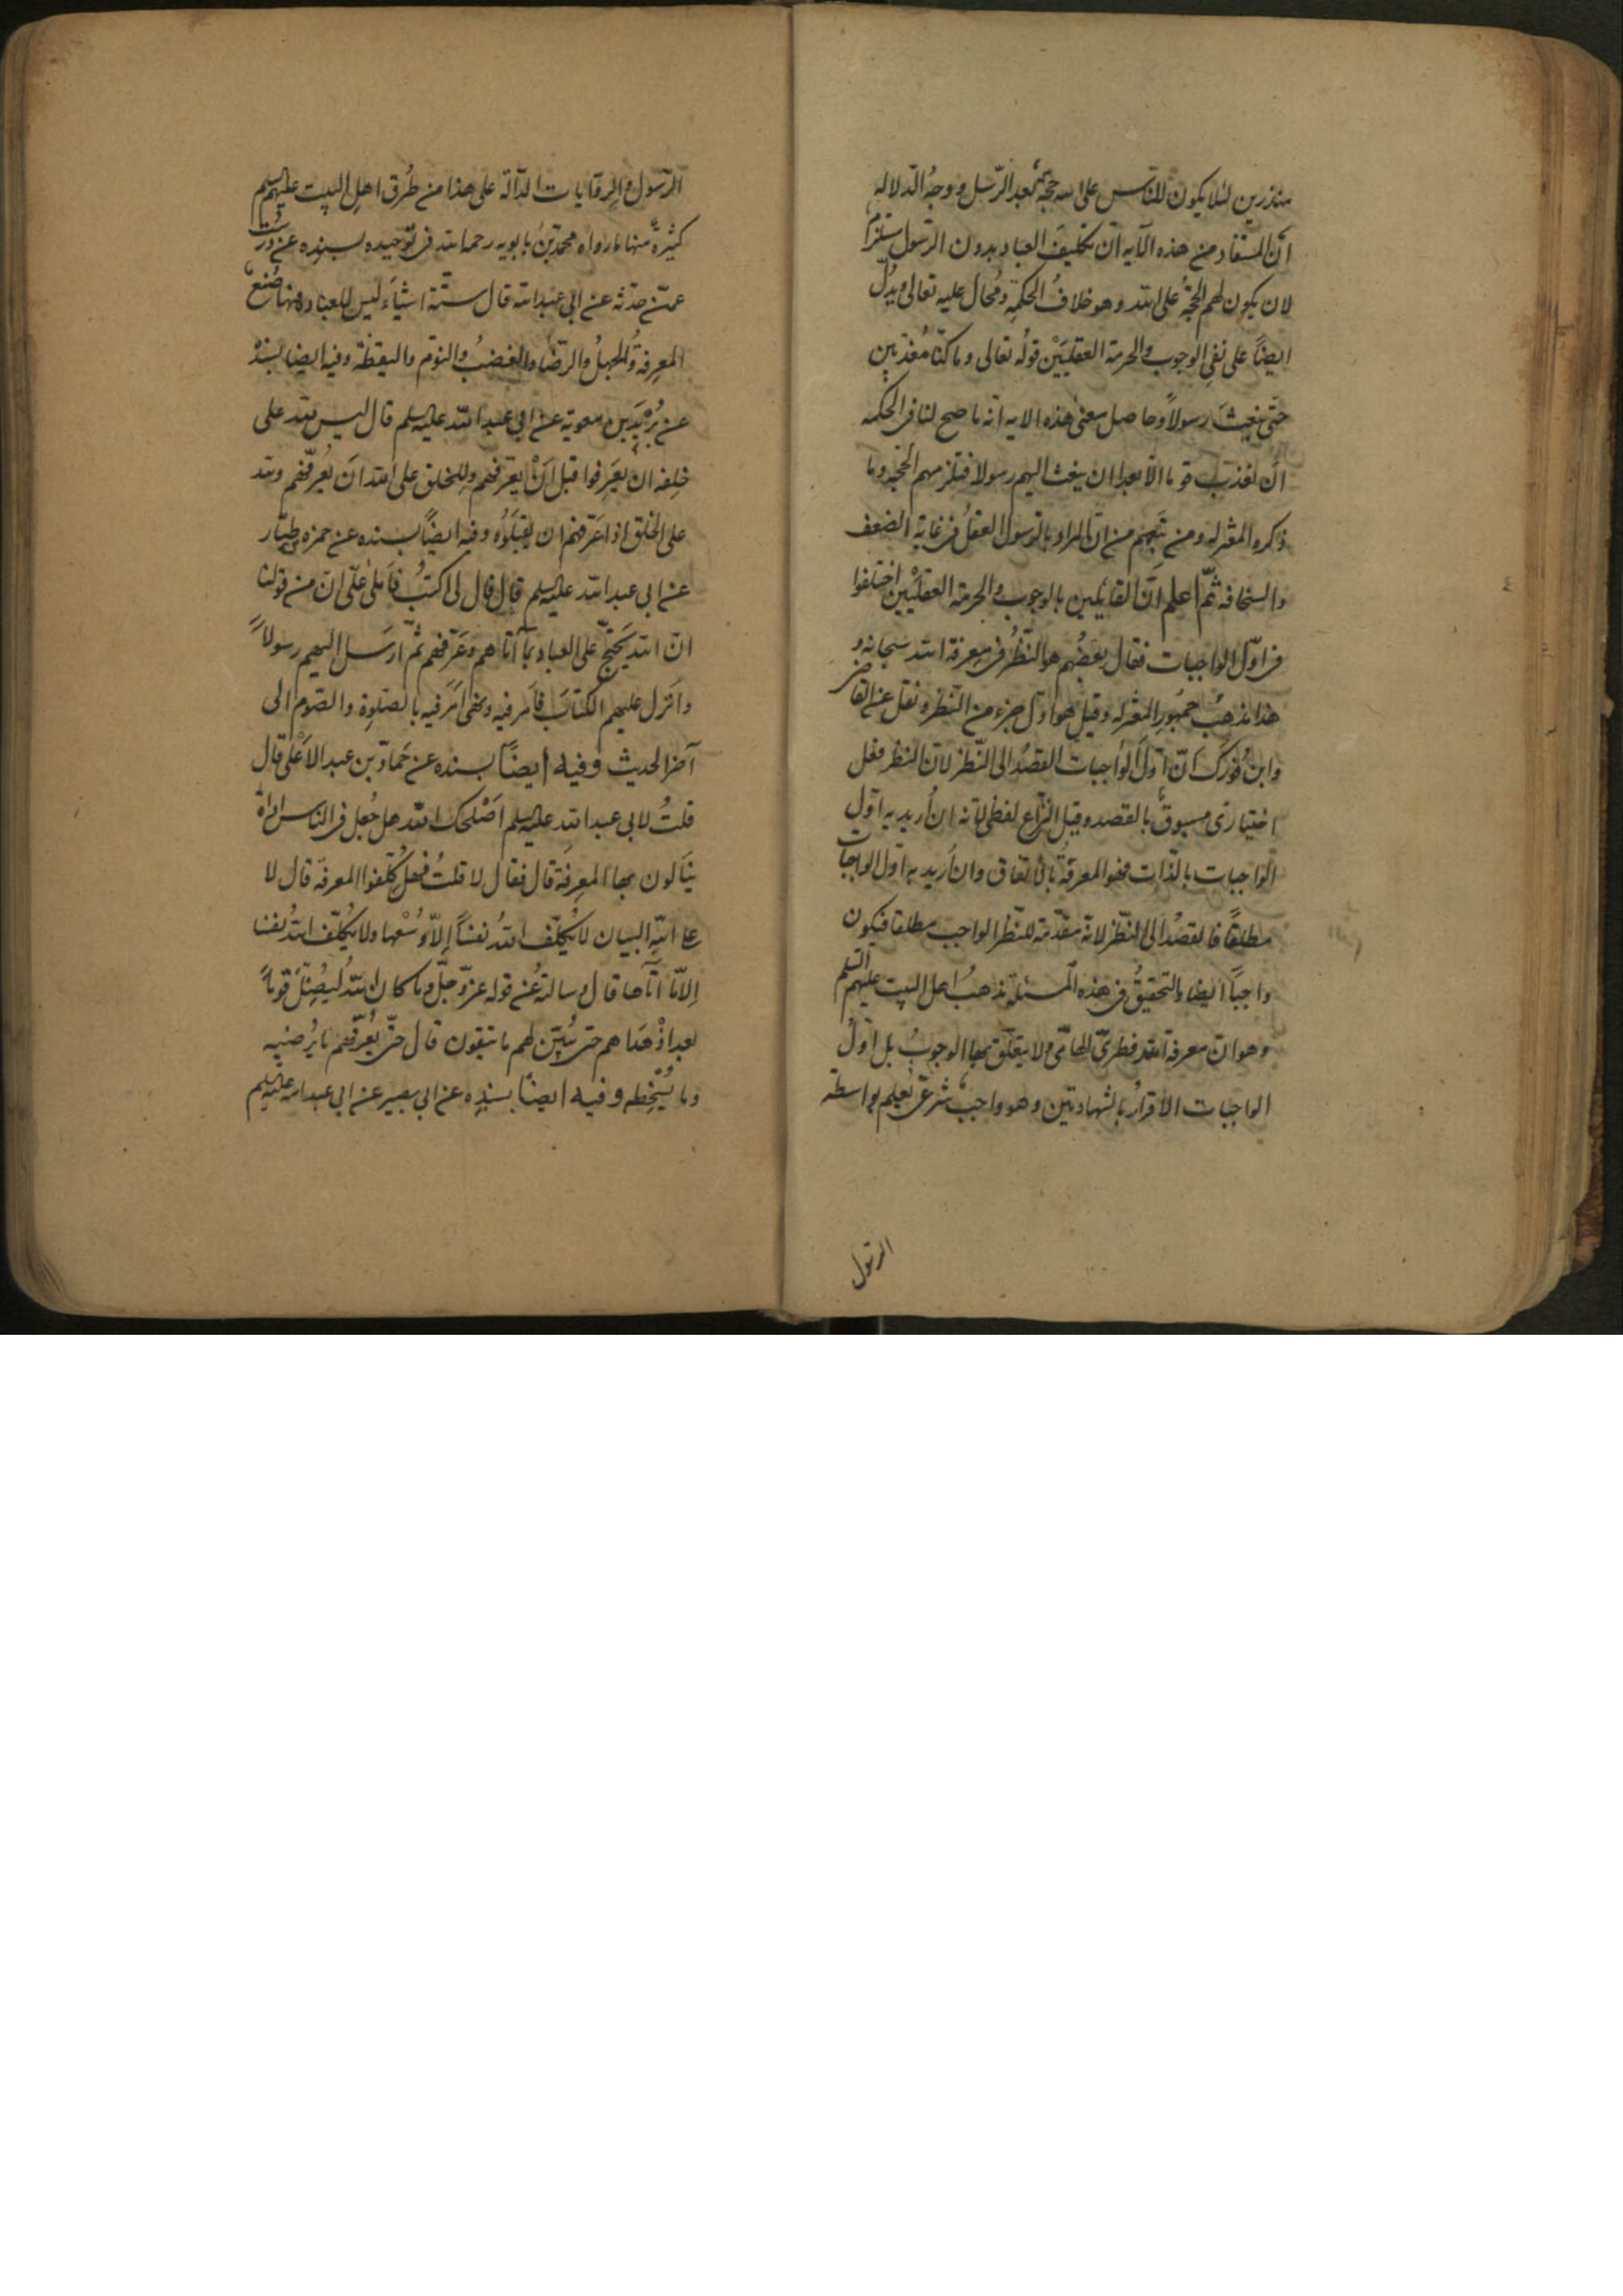 منذرين لئلا يكون للناس على الله حجّة بعد الرّسل ووجهُ الدلاله
أنّ المستفاد من هذه الآيه انّ تكليفَ العباد بدون الرّسول مستلزم
لان يكون لهم الحجّةُ على الله وهو خلافُ الحكمةِ ومُحال عليه تعالى ويدُلّ
ايضاً على نفي الوجوب والحرمة العقليَّيْن قولُه تعالى وما كنّا مُعَذّبين
حتّى نبعثَ رسولاً وحاصل معنى هذه الايه انه ما صح لنا في الحكمه
أن نُعذّبَ قوما الّا بعد ان نبعث اليهم رسولا فتلزمهم الحجّه وما
ذكره المعتزله ومن تَبِعهم من انّ المراد بالرّسول العقلُ في غاية الضعف
والسخافه ثمّ اعلم انّ القائلين بالوجوب والحرمة العقليَّيْن اختلفوا
في اوّل الواجبات فقال بعضُهم هو النّظرُ في معرفة الله سبحانه و
هذا مذهبُ جمُهورِ المعتزله وقيل هو اوّل جزءٍ من النّظر ونقل عن القاضي
وابن فُورَك انّ اوّل الواجبات القصدُ الى النّظر لانّ النظر فعل
اختياريّ مسبوقٌ بالقصد وقيل النزاع لفظى لانّه ان اُريد به اوّل
الواجبات بالذّات فهو المعرفةُ بالاتفاق وان اُريد به اوّل الواجبات
مطلقاً فالقصدُ الى النّظر لانّه مقدّمة للنّظر الواجب مطلقا فيكون
واجباً ايضا والتحقيقُ في هذه المسئلة مذهبُ اهل البيت عليهم السّلم
وهو انّ معرفة الله فطريّ الهاميّ ولا يتعلّق بها الوجوبُ بل اوّلُ
الواجبات الاقرارُ بالشهادتين وهو واجبٌ شرعيّ يُعلم بواسطة
الرسول
الرّسول والرِوايات الدّالّة على هذا من طُرق اهل البيت عليهم السلم
كثيرةٌ منها ما رواه محمّد بنُ بابويه رحمه الله في توحيده بسنده عن دُرست
عمّن حدّثه عن ابي عبد الله قال ستّة اشيٰاء ليس للعباد فيها صُنع
المعرفةُ والجهلُ والرّضا والغضبُ والنّوم واليقظة وفيه ايضا بسنده
عن بُرَيْدِ بن معوية عن ابي عبد الله عليه السلم قال ليس لله على
خلقه ان يَعرِفوا قبل اَنْ يُعَرّفَهم وللخلق على الله اَن يُعرّفَهم ولله
على الخلق اذا عَرّفهم ان يقبَلوُه وفيه ايضاً بسنده عن حمزه بن طيّار
عن ابي عبد الله عليه السلم قال قال لي اكتُبْ فاَملىٰ عَلَيّ انّ من قولنا
انّ الله يَحتجّ على العباد بما آتاهم وعَرّفَهم ثمّ ارسَل اليهم رسولاً
واَنزل عليهم الكتابَ فاَمر فيه ونهى اَمَر فيه بالصلوة والصّوم الى
آخر الحديث وفيه ايضاً بسنده عن حَمّاد بن عبد الاَعْلى قال
قلتُ لابي عبد الله عليه السلم اَصْلَحك الله هل جُعِل في الناس اداةٌ
ينٰالون بها المعرفة قال فقال لا قلتُ فهل كُلّفوا المعرفة قال لا
على اللهِ البيان لا يُكلّف اللهُ نفساً اِلاّ وُسْعَها ولا يُكلّف اللهُ نفسا
اِلاّ ما آتاها قال وسالتُه عن قوله عزّ وجلّ وما كان اللهُ ليُضِلّ قوماً
بعد اِذْ هداهم حتى يُبيّن لهم ما يتّقون قال حتّى يُعرّفَهم ما يُرضيه
وما يُسْخِطه وفيه ايضاً بسندِه عن ابي بصير عن ابي عبد الله عليه السلم